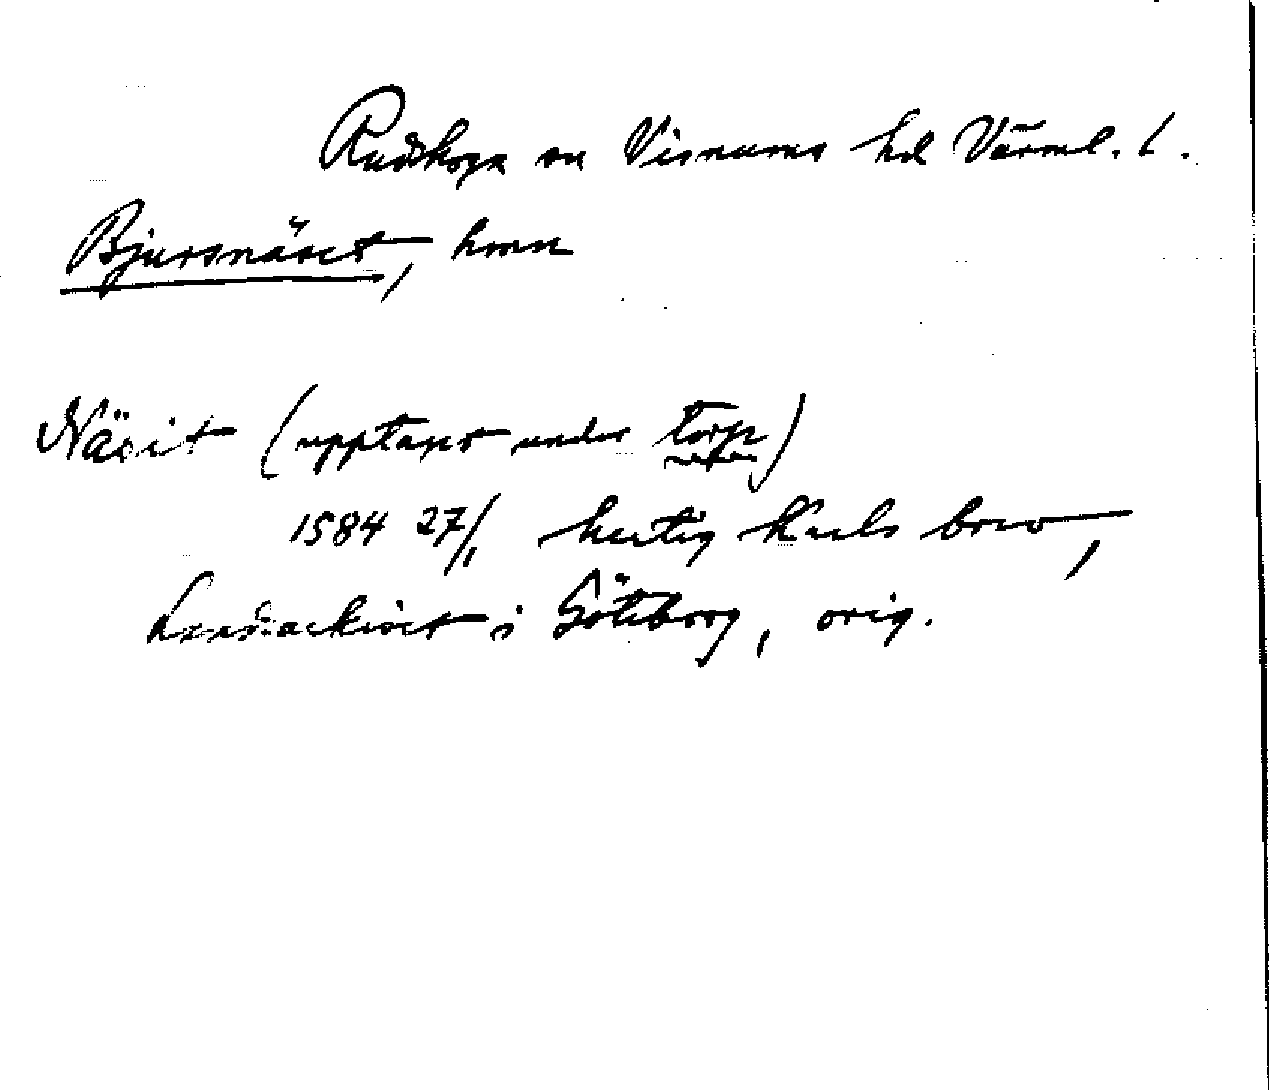 Rudskoga sn Visnums hd Värml. l.
Bjursnäset, hmn
Näsit (upptaget under torp)
1584 27/1 hertig Karls brev,
Landsarkivet i Göteborg, orig.